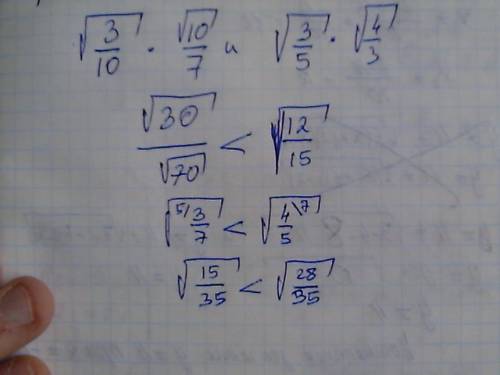 √(3/10) · √10/7 и √(3/5) · √(4/3)
√30/√70 < √(12/15)
√(⁵⁾3/7) < √(4/5⁽⁷)
√(15/35) < √(28/35)